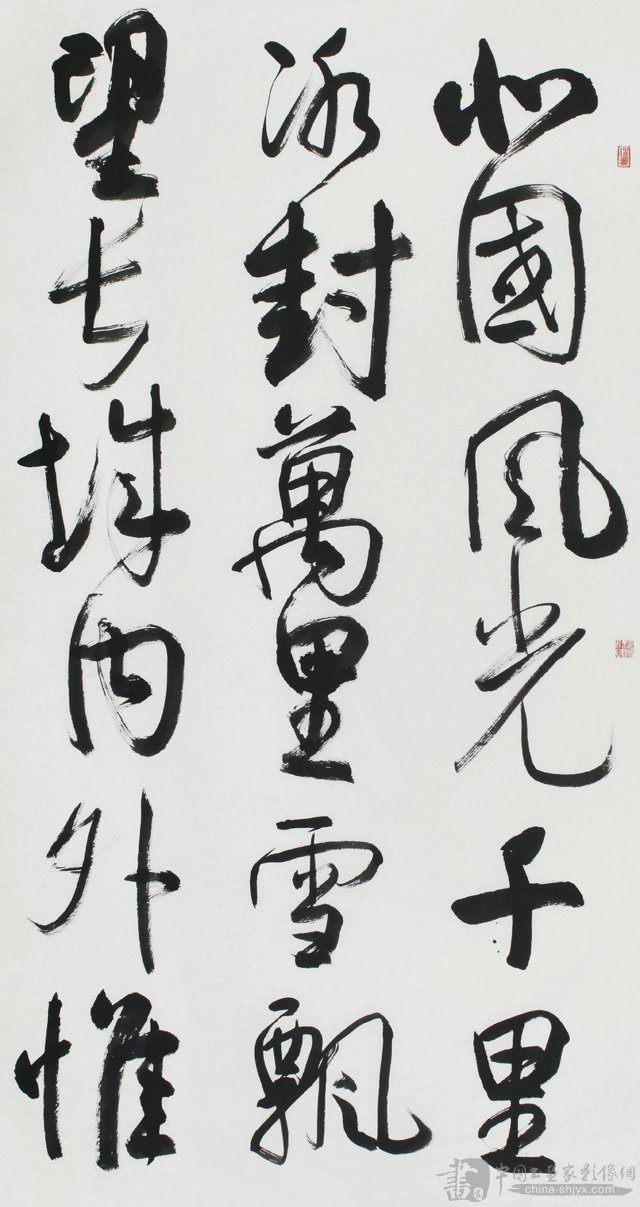 北國風光千里
冰封萬里雪飄
望長城內外惟
書 中國书画家影像網
china-shjyx.com